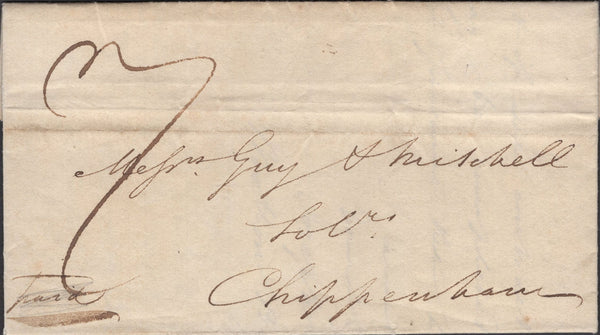 7
Messrs. Guy & Mitchell
Solrs.
Chippenham
Paid